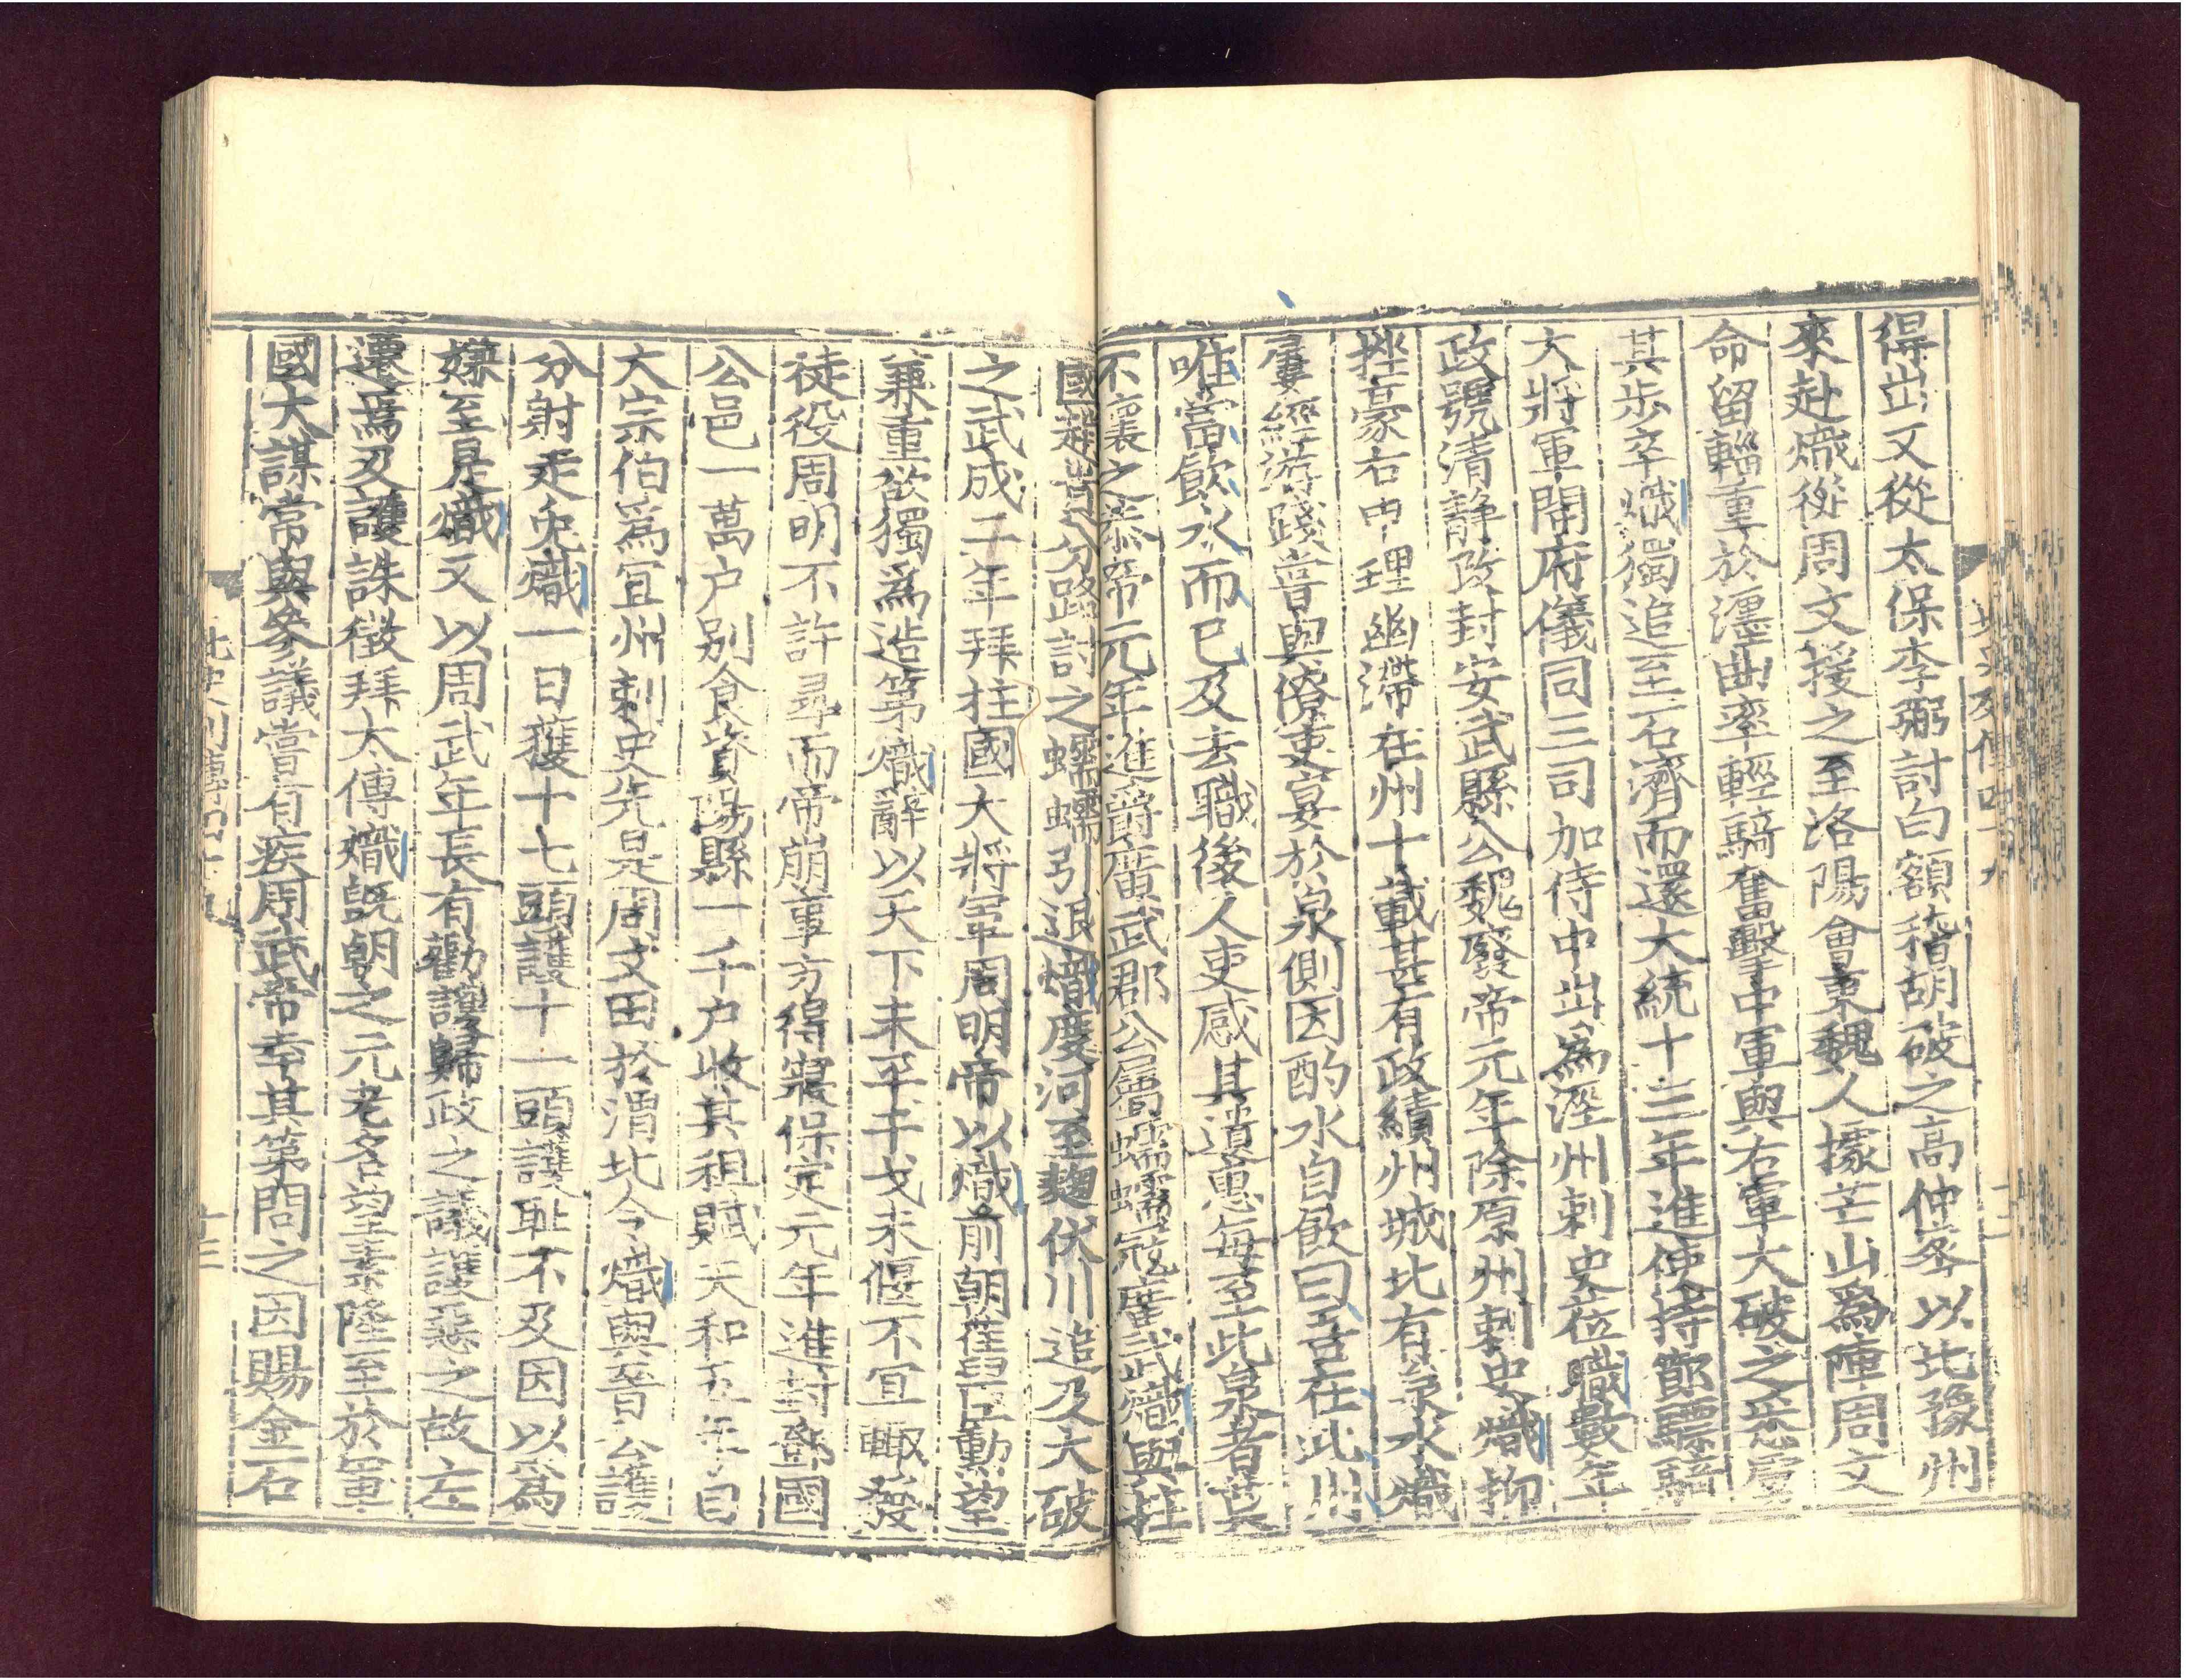 得出又從太保李弼討白額稽胡破之高仲密以北豫州
來赴熾從周文援之至洛陽會東魏人據芒山為陣周文
命留輜重於瀍曲率輕騎奮擊中軍與右軍大破之悉虜
其步卒熾獨追至石濟而還大統十三年進使持節驃騎
大將軍開府儀同三司加侍中出為涇州刺史莅職數年
政號清靜改封安武縣公魏廢帝元年除原州刺史熾抑
挫豪右申理幽滯在州十載甚有政績州城北有泉水熾
屢經游踐嘗與僚吏宴於泉側因酌水自飲曰吾在此州
唯當飲水而已及去職後人吏感其遺惠每至此泉者莫
不懷之恭帝元年進爵廣武郡公屬蠕蠕寇廣武熾與柱
國趙貴分路討之蠕蠕引退熾度河至麴伏川追及大破
之武成二年拜柱國大將軍周明帝以熾前朝佳臣勳望
兼重欲獨為造第熾辭以天下未平干戈未偃不宜輒發
徒役周明不許尋而帝崩事方得寢保定元年進封鄧國
公邑一萬戶別食資陽縣一千戶收其租賦天和五年自
大宗伯為宜州刺史先是周文田於渭北令熾與晉公護
分射走兔熾一日獲十七頭護十一頭護耻不及因以為
嫌至是熾又以周武年長有勸護歸政之議護惡之故左
遷焉及護誅徵拜太傅熾既朝之元老名望素隆至於軍
國大謀常與參議嘗有疾周武帝幸其第問之因賜金石
北史列傳四十九
十三